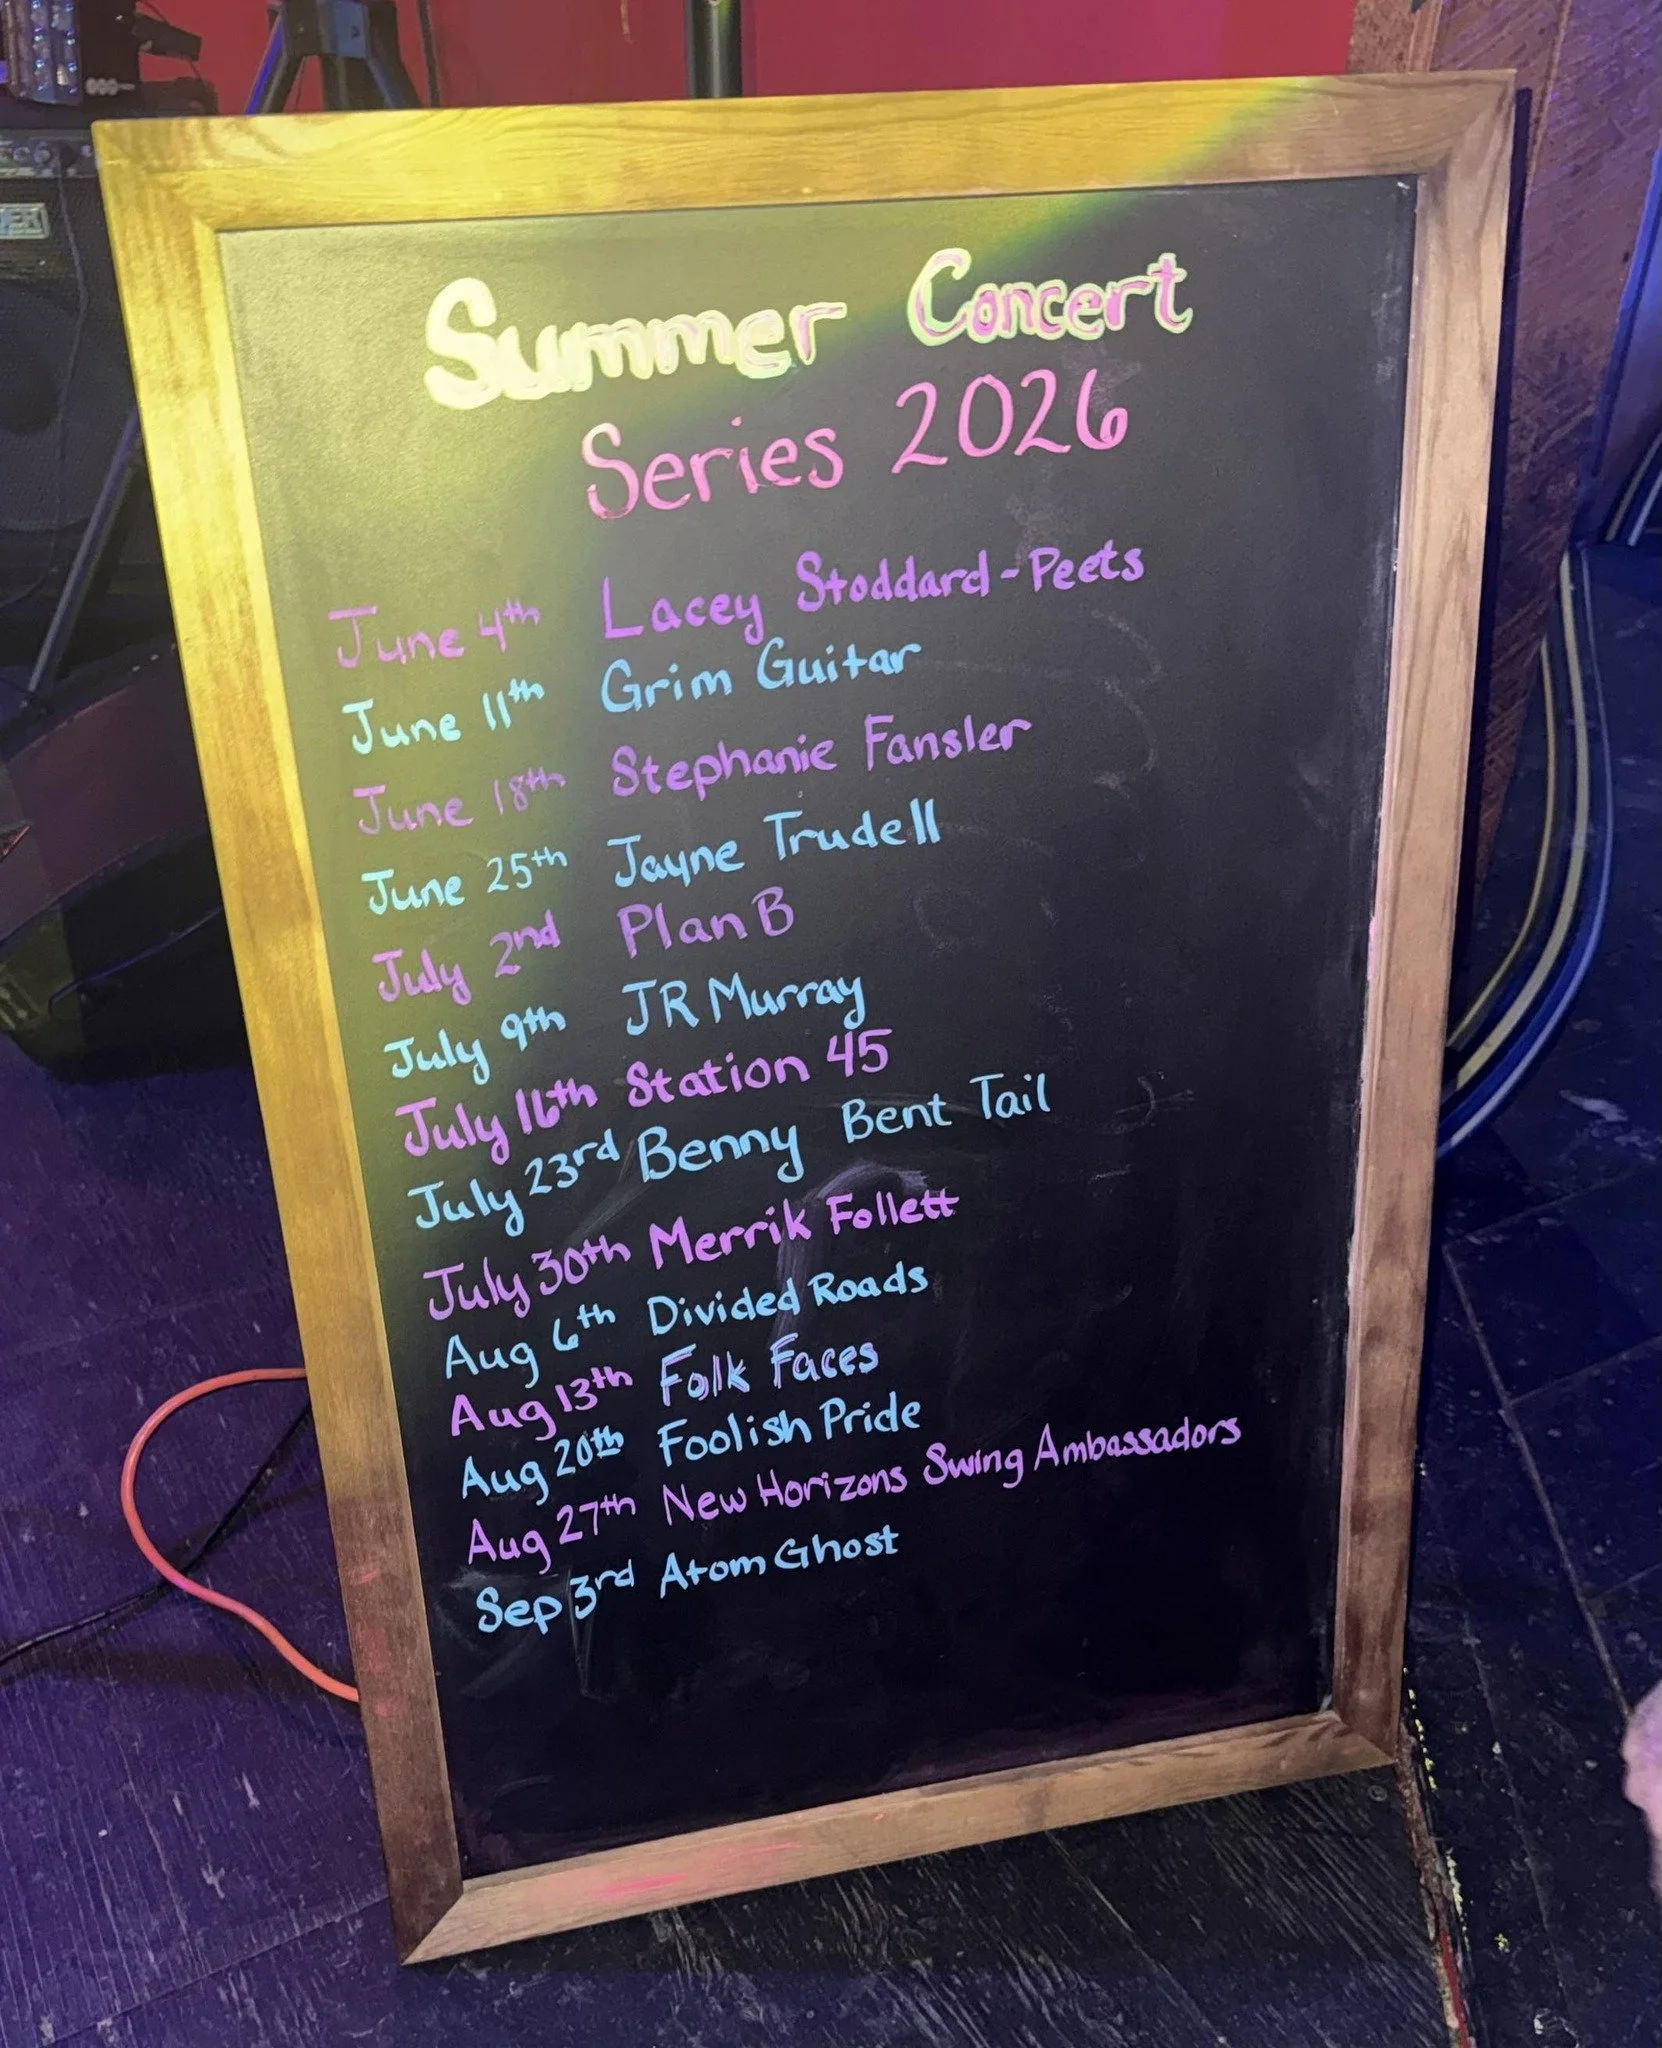 Summer Concert
Series 2026
June 4th Lacey Stoddard-Peets
June 11th Grim Guitar
June 18th Stephanie Fansler
June 25th Jayne Trudell
July 2nd Plan B
July 9th JR Murray
July 16th Station 45
July 23rd Benny Bent Tail
July 30th Merrik Follett
Aug 6th Divided Roads
Aug 13th Folk Faces
Aug 20th Foolish Pride
Aug 27th New Horizons Swing Ambassadors
Sep 3rd Atom Ghost